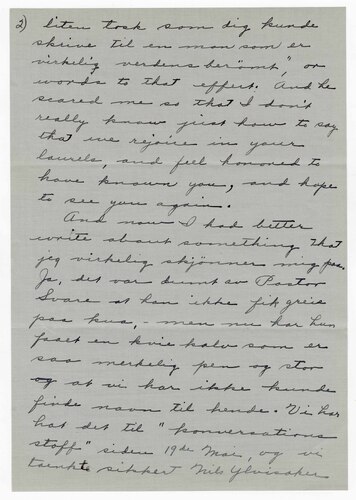 2) liten tosk som dig kunde
skrive til en man som er
virkelig verdensberömt", or
words to that effect. And he
scared me so that I don't
really know just how to say
that we rejoice in your
laurels, and feel honored to
have known you, and hope
to see you again.
And now I had better
write about something that
jeg virkelig skjönner mig paa.
Ja, det var dumt av Pastor
Svare at han ikke fik greie
paa kua, - men nu har hun
faaet en kvie kalv som er
saa merkelig pen og stor
og at vi har ikke kunde
finde navn til hende. Vi har
hat det til "konversations
stoff" siden 19de Mai, og vi
taenkte sikkert Nils Ylvisaker